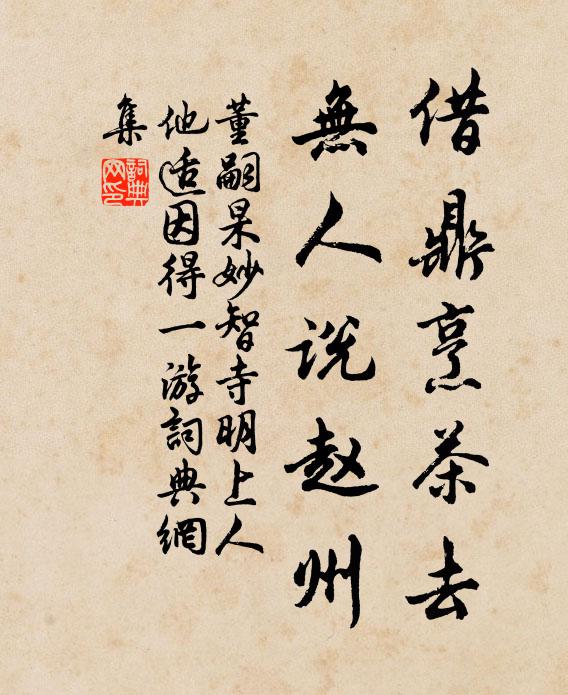 借鼎烹茶去
無人説赵州
董嗣杲妙智寺明上人
他适因得一游詞典網
集
詞典
网印